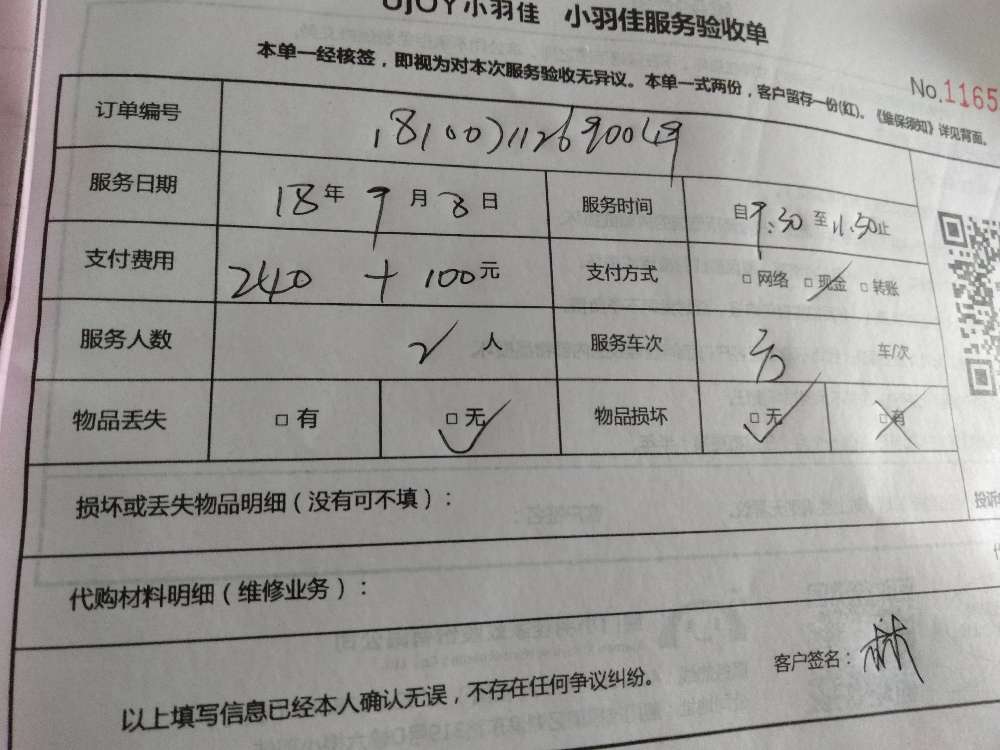 UJOY小羽佳 小羽佳服务验收单
本单一经核签，即视为对本次服务验收无异议。本单一式两份，客户留存一份(红)。《维保须知》详见背面。
No.1165
订单编号
服务日期 18年 9月 8日 服务时间 自9:30至11:30止
支付费用 240 + 100元 支付方式 □网络 □现金 □转账
服务人数 2人 服务车次 车/次
物品丢失 □有 □无 物品损坏 □无 □有
损坏或丢失物品明细（没有可不填）：
投诉
代购材料明细（维修业务）：
客户签名：林
以上填写信息已经本人确认无误，不存在任何争议纠纷。